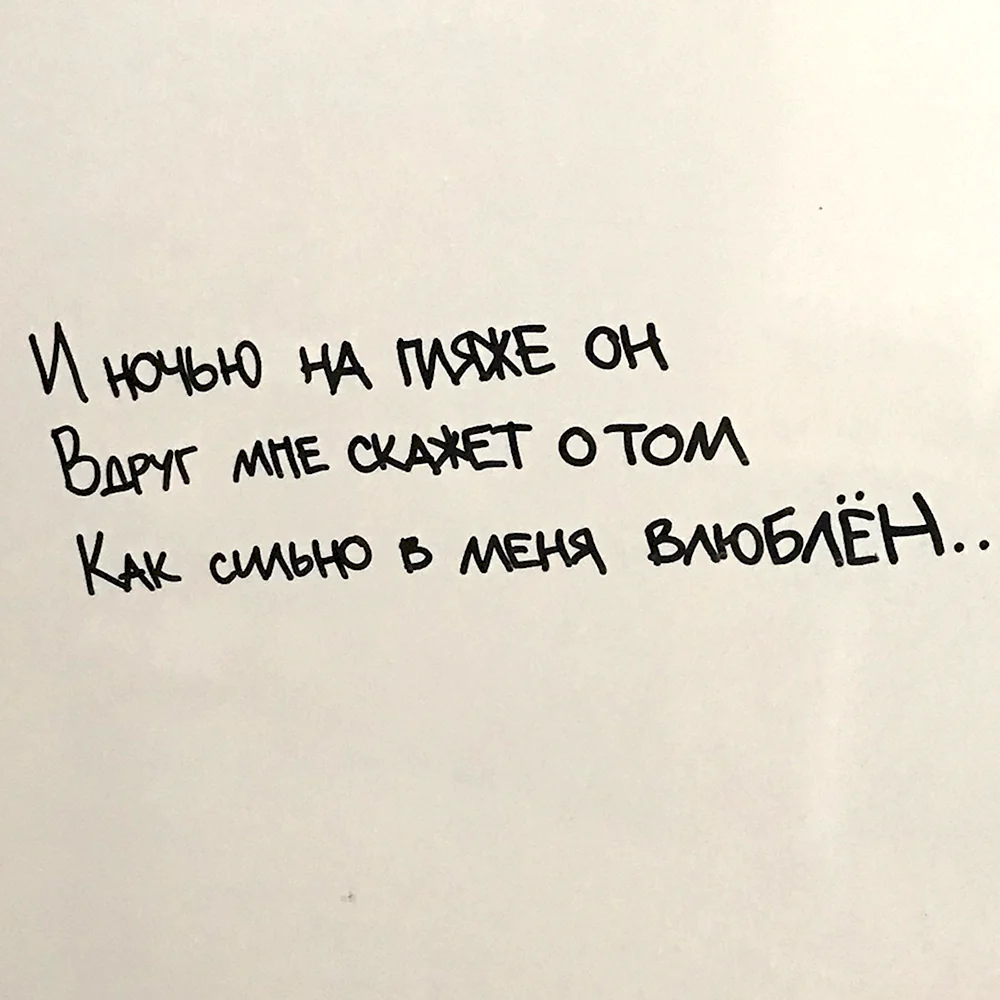 И ночью на пляже он
Вдруг мне скажет о том
Как сильно в меня влюблён..